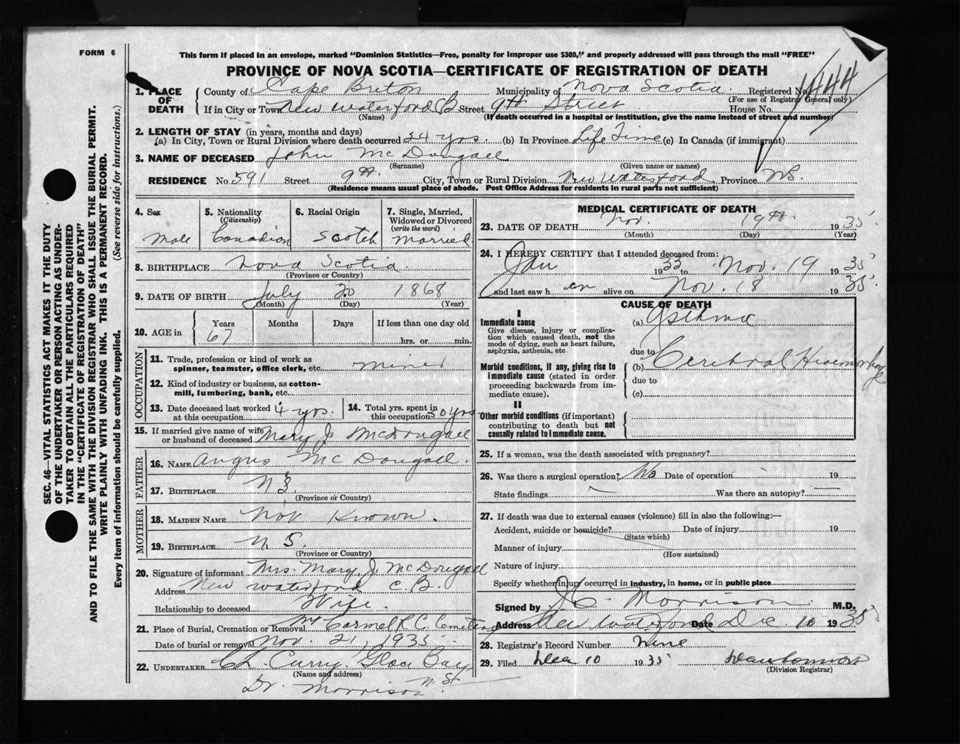 FORM 6
This form if placed in an envelope, marked "Dominion Statistics—Free, penalty for improper use $300," and properly addressed will pass through the mail "FREE"
PROVINCE OF NOVA SCOTIA—CERTIFICATE OF REGISTRATION OF DEATH
1. PLACE OF DEATH County of Cape Breton Municipality of Nova Scotia Registered No. 1444
(For use of Registrar General only)
If in City or Town New Waterford C B Street 9th Street House No.
(Name) (If death occurred in a hospital or institution, give the name instead of street and number)
2. LENGTH OF STAY (in years, months and days)
(a) In City, Town or Rural Division where death occurred 24 yrs. (b) In Province Life Time (c) In Canada (if immigrant)
3. NAME OF DECEASED John Mc Dougall
(Surname) (Given name or names)
RESIDENCE No. 591 Street 9th City, Town or Rural Division New Waterford Province N.S.
(Residence means usual place of abode. Post Office Address for residents in rural parts not sufficient)
4. Sex Male
5. Nationality (Citizenship) Canadian
6. Racial Origin Scotch
7. Single, Married, Widowed or Divorced (write the word) Married
8. BIRTHPLACE Nova Scotia
(Province or Country)
9. DATE OF BIRTH July 20 1868
(Month) (Day) (Year)
10. AGE in Years 67 Months Days If less than one day old
hrs. or min.
OCCUPATION
11. Trade, profession or kind of work as spinner, teamster, office clerk, etc. Miner
12. Kind of industry or business, as cotton-mill, lumbering, bank, etc.
13. Date deceased last worked at this occupation 4 yrs.
14. Total yrs. spent in this occupation 50 yrs
15. If married give name of wife or husband of deceased Mary J. McDougall
FATHER
16. NAME Angus Mc Dougall.
17. BIRTHPLACE N S
(Province or Country)
MOTHER
18. MAIDEN NAME Not Known.
19. BIRTHPLACE N. S.
(Province or Country)
20. Signature of informant Mrs. Mary J. McDougall
Address New Waterford C.B.
Relationship to deceased Wife.
21. Place of Burial, Cremation or Removal Mt Carmel R.C. Cemetery
Date of burial or removal Nov. 21 1935
22. UNDERTAKER Ch. Curry. Glace Bay
(Name and address)
Dr. Morrison
MEDICAL CERTIFICATE OF DEATH
23. DATE OF DEATH Nov. 19th 1935
(Month) (Day) (Year)
24. I HEREBY CERTIFY that I attended deceased from:
Jan 1933 to Nov. 19 1935
and last saw h im alive on Nov. 18 1935
CAUSE OF DEATH
I
Immediate cause
Give disease, injury or complication which caused death, not the mode of dying, such as heart failure, asphyxia, asthenia, etc.
(a) Asthma
due to
Morbid conditions, if any, giving rise to immediate cause (stated in order proceeding backwards from immediate cause).
(b) Cerebral Hemorrhage
due to
(c)
II
Other morbid conditions (if important) contributing to death but not causally related to immediate cause.
25. If a woman, was the death associated with pregnancy?
26. Was there a surgical operation? No Date of operation 19
State findings Was there an autopsy?
27. If death was due to external causes (violence) fill in also the following:—
Accident, suicide or homicide? Date of injury 19
(State which)
Manner of injury
(How sustained)
Nature of injury
Specify whether injury occurred in industry, in home, or in public place
Signed by J.C. Morrison M.D.
Address New Waterford Date Dec 10 1935
28. Registrar's Record Number Nine
29. Filed Dec 10 1935
(Division Registrar)
SEC. 46—VITAL STATISTICS ACT MAKES IT THE DUTY
OF THE UNDERTAKER OR PERSON ACTING AS UNDER-
TAKER TO OBTAIN ALL THE PARTICULARS REQUIRED
IN THE "CERTIFICATE OF REGISTRATION OF DEATH"
AND TO FILE THE SAME WITH THE DIVISION REGISTRAR WHO SHALL ISSUE THE BURIAL PERMIT.
WRITE PLAINLY WITH UNFADING INK. THIS IS A PERMANENT RECORD.
Every item of information should be carefully supplied. (See reverse side for instructions.)